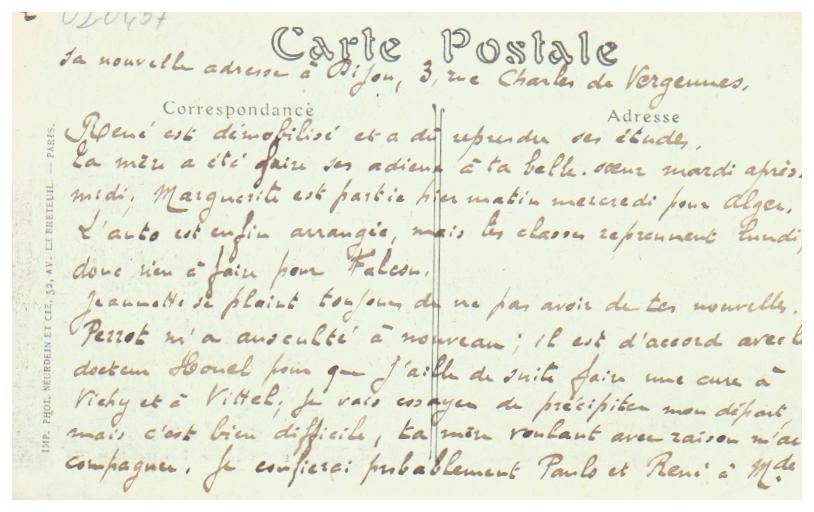 020457
Carte Postale
sa nouvelle adresse à Dijon, 3, rue Charles de Vergennes.
Correspondance
Adresse
René est démobilisé et a dû reprendre ses études.
Ta mère a été faire ses adieux à ta belle-sœur mardi après-
midi, Marguerite est partie hier matin mercredi pour Alger.
L'auto est enfin arrangée, mais les classes reprennent lundi,
donc rien à faire pour Falcon.
Jeannette se plaint toujours de ne pas avoir de tes nouvelles.
Perrot m'a ausculté à nouveau ; il est d'accord avec le
docteur Honel pour que j'aille de suite faire une cure à
Vichy et à Vittel ; Je vais essayer de précipiter mon départ,
mais c'est bien difficile, ta mère voulant avec raison m'ac
compagner. Je confierai probablement Paulo et René à Mde
IMP. PHOT. NEURDEIN ET CIE, 52, AV. DE BRETEUIL. — PARIS.